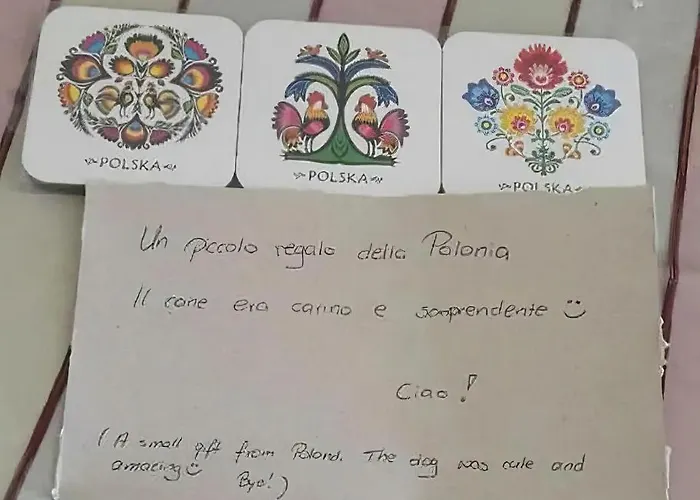 POLSKA
POLSKA
POLSKA
Un piccolo regalo della Polonia
Il cane era carino e sorprendente ☺
Ciao!
(A small gift from Poland. The dog was cute and
amazing ☺ Bye!)